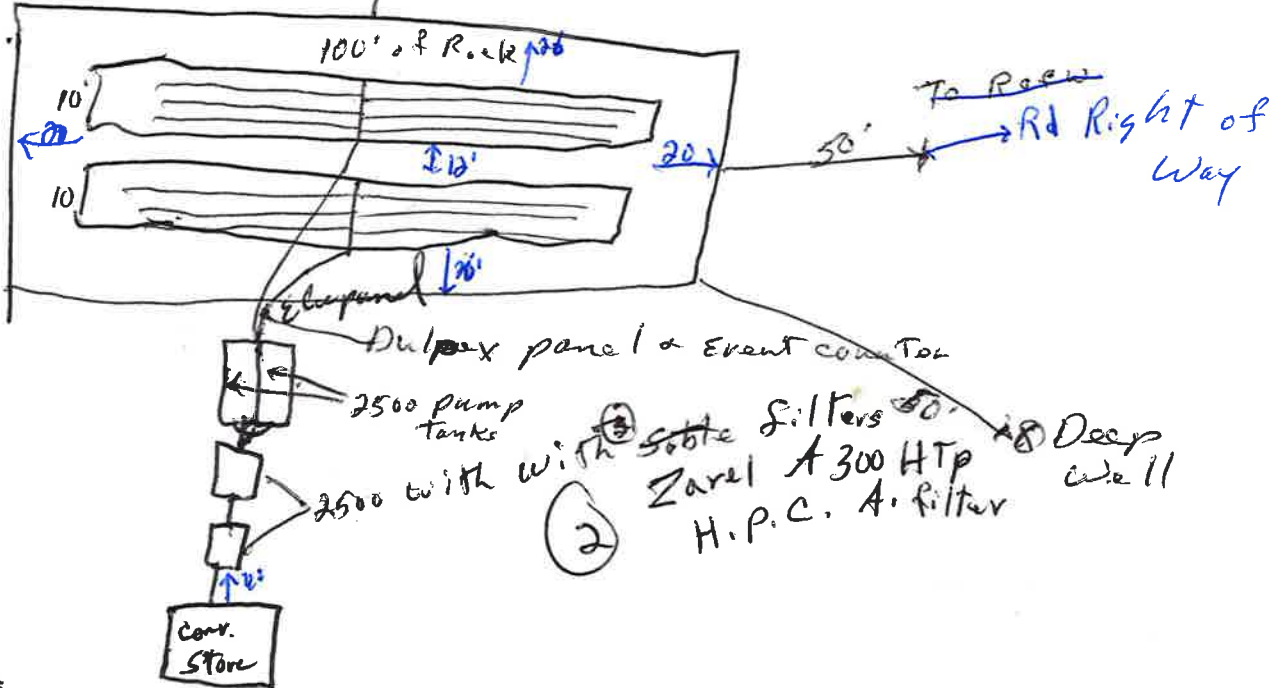 100' of Rock
20
10'
20
12'
10
20
50'
To Row
Rd Right of
Way
20'
Elc panel
Dulpex panel & Event counter
2500 pump
tanks
2500 with with ③ Soble filters
50'
Deep
Well
②
Zarel A 300 HTp
H.P.C. A. filter
Conv.
Store